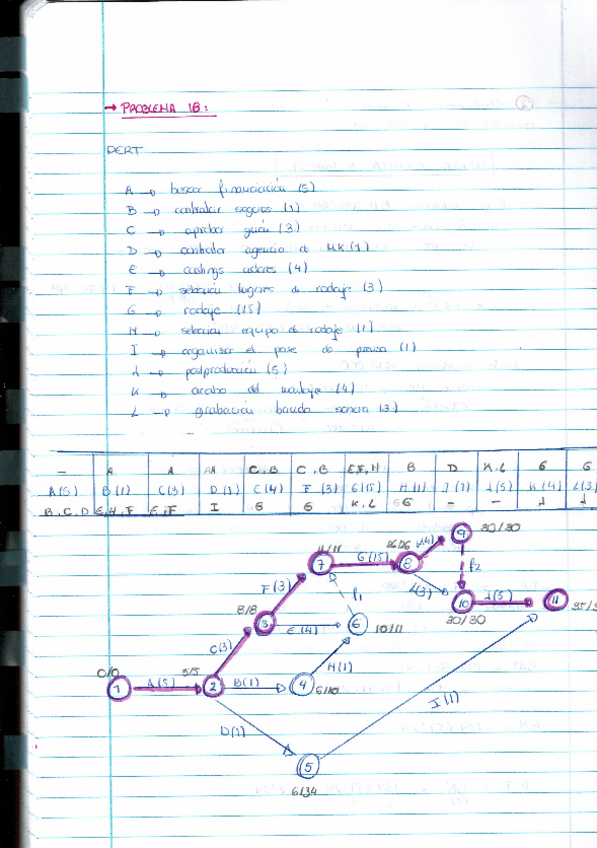 → PROBLEMA 1B:
PERT:
A → buscar financiación (5)
B → contratar seguros (1)
C → aprobar guión (3)
D → contratar agencia de MK (1)
E → castings actores (4)
F → selección lugares de rodaje (3)
G → rodaje (15)
H → selección equipo de rodaje (1)
I → organizar el pase de prensa (1)
J → postproducción (5)
K → acabo del montaje (4)
L → grabación banda sonora (3)
— A A A C,B C,B E,F,H B D K,L G G
A(5) B(1) C(3) D(1) E(4) F(3) G(15) H(1) I(1) J(5) K(4) L(3)
B,C,D E,H,F E,F I G G K,L G — — J J
11/11 26/26 K(4) 9 30/30
7 G(15) 8 f2
F(3) f1 L(3) 10 J(5) 11 35/3
8/8 30/30
3 E(4) 6 10/11
C(3)
0/0 5/5 H(1)
1 A(5) 2 B(1) 4 6/10
I(1)
D(1)
5
6/34